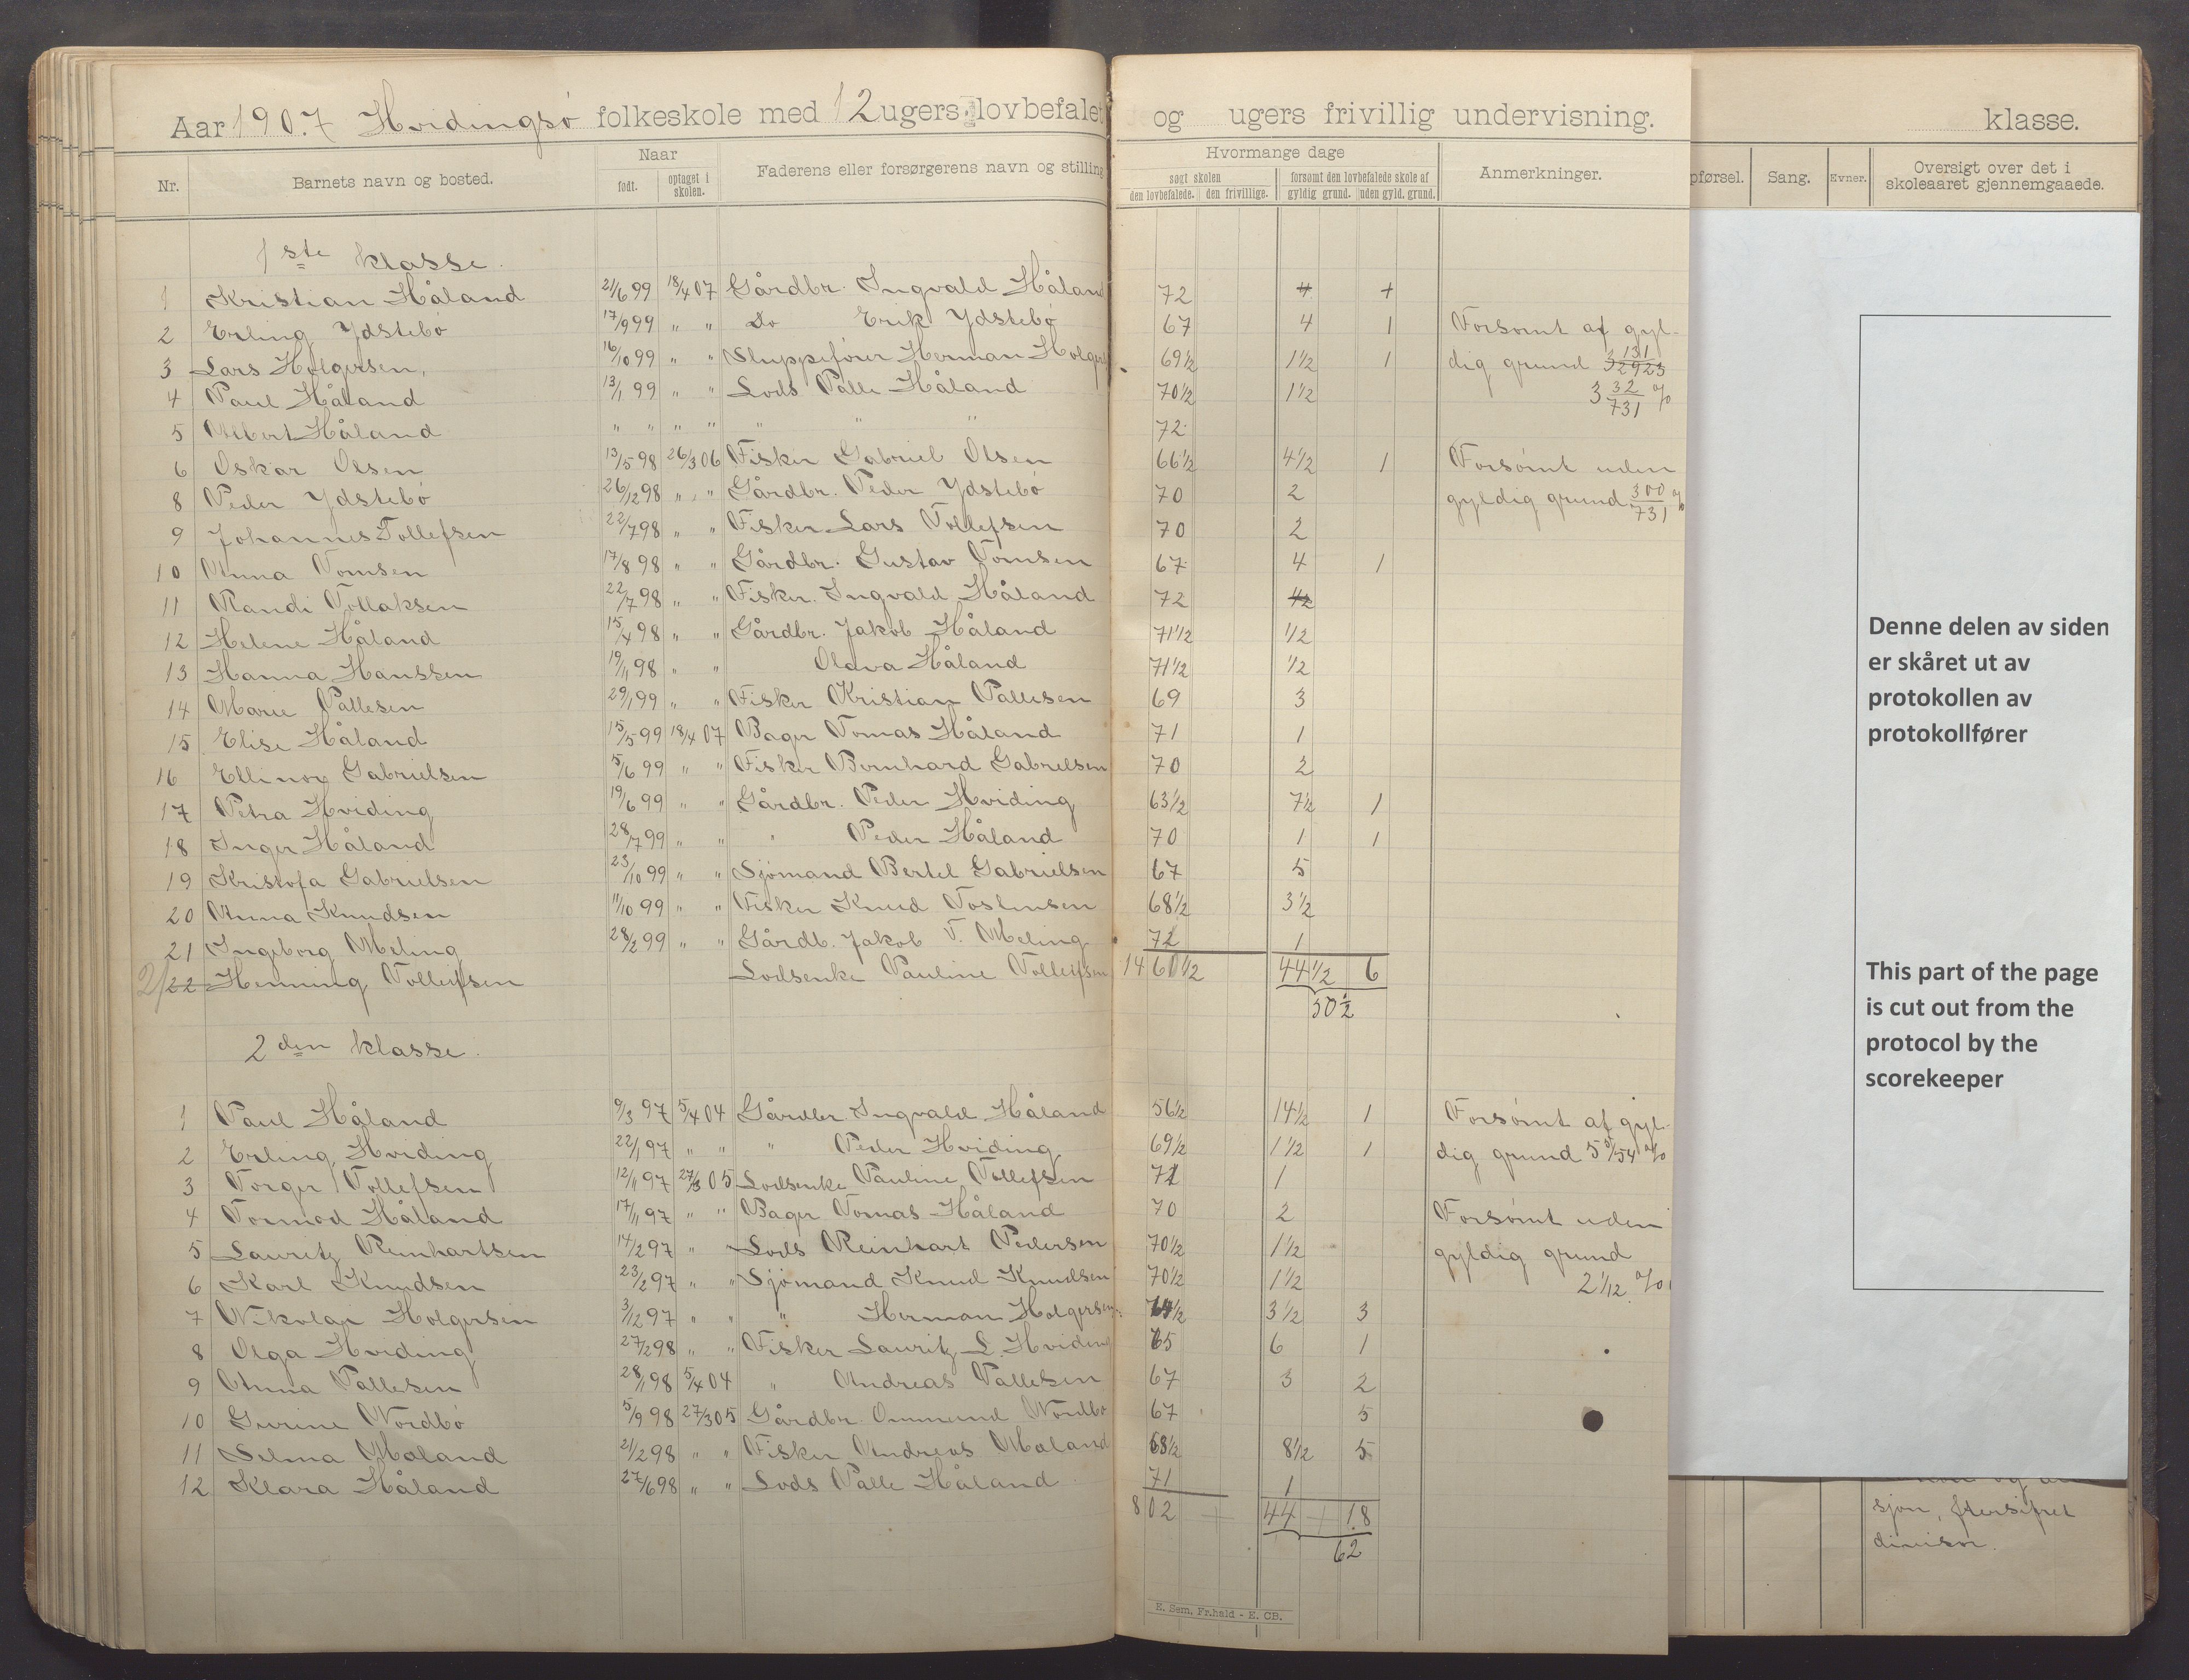 Aar 1907 Hvidingsø folkeskole med 12 ugers lovbefalet og ugers frivillig undervisning. klasse.
Nr. Barnets navn og bosted. Naar Faderens eller forsørgerens navn og stilling Hvormange dage Anmerkninger.
født. optaget i skolen. søgt skolen forsømt den lovbefalede skole af
den lovbefalede. den frivillige. gyldig grund. uden gyld. grund.
pførsel. Sang. Evner. Oversigt over det i
skoleaaret gjennemgaaede.
1ste klasse.
1 Kristian Håland 21/6 99 18/4 07 Gårdbr. Ingvald Håland 72
2 Erling Ydstebø 17/9 99 " " Do Erik Ydstebø 67 4 1 Forsømt af gyl-
3 Lars Holgersen, 16/10 99 " " Sluppefører Herman Holgers 69 1/2 1 1/2 1 dig grund 3 131/2925
4 Paul Håland 13/1 99 " " Lods Palle Håland 70 1/2 1 1/2 3 32/731 %
5 Albert Håland " " " " " " " 72
6 Oskar Olsen 13/5 98 26/3 06 Fisker Gabriel Olsen 66 1/2 4 1/2 1 Forsømt uden
8 Peder Ydstebø 26/12 98 " " Gårdbr. Peder Ydstebø 70 2 gyldig grund 300/731 %
9 Johannes Tollefsen 22/7 98 " " Fisker Lars Tollefsen 70 2
10 Anna Tomsen 17/8 98 " " Gårdbr. Gustav Tomsen 67 4 1
11 Randi Tollaksen 22/7 98 " " Fisker. Ingvald Håland 72
12 Helene Håland 15/4 98 " " Gårdbr. Jakob Håland 71 1/2 1/2
13 Hanna Hanssen 19/11 98 " " Olava Håland 71 1/2 1/2
14 Marie Pallesen 29/1 99 " " Fisker Kristian Pallesen 69 3
15 Elise Håland 15/5 99 18/4 07 Bager Tomas Håland 71 1
16 Ellinor Gabrielsen 5/6 99 " " Fisker Bernhard Gabrielsen 70 2
17 Petra Hviding 19/6 99 " " Gårdbr. Peder Hviding 63 1/2 7 1/2 1
18 Inger Håland 28/7 99 " " " Peder Håland 70 1 1
19 Kristofa Gabrielsen 23/10 99 " " Sjømand Bertel Gabrielsen 67 5
20 Anna Knudsen 11/10 99 " " Fisker Knud Toslensen 68 1/2 3 1/2
21 Ingeborg Meling 28/2 99 " " Gårdb. Jakob T. Meling 72 1
21/22 Henning Tollefsen Lodsenke Pauline Tollefsen 1460 1/2 44 1/2 6
50 1/2
2den klasse.
1 Paul Håland 9/3 97 5/4 04 Gårdbr Ingvald Håland 56 1/2 14 1/2 1 Forsømt af gyl-
2 Erling Hviding 22/1 97 " " " Peder Hviding 69 1/2 1 1/2 1 dig grund 5 5/54 %
3 Torger Tollefsen 12/11 97 27/3 05 Lodsenke Pauline Tollefsen 71 1
4 Tormod Håland 17/11 97 " " Bager Tomas Håland 70 2 Forsømt uden
5 Lauritz Reinhartsen 14/2 97 " " Lods Reinhart Pedersen 70 1/2 1 1/2 gyldig grund
6 Karl Knudsen 23/2 97 " " Sjømand Knud Knudsen 70 1/2 1 1/2 2 1/12 %
7 Nikolai Holgersen 3/12 97 " " " Herman Holgersen 3 1/2 3
8 Olga Hviding 27/2 98 " " Fisker Lauritz L. Hviding 65 6 1
9 Anna Pallesen 28/1 98 5/4 04 " Andreas Pallesen 67 3 2
10 Gurine Nordbø 5/9 98 27/3 05 Gårdbr. Ommund Nordbø 67 5
11 Selma Maland 21/2 98 " " Fisker Andreas Maland 58 1/2 8 1/2 5
12 Klara Håland 27/6 98 " " Lods Palle Håland 71 1
802 44 + 18
62
E. Sem, Fr.hald - E. CB.
Denne delen av siden
er skåret ut av
protokollen av
protokollfører
This part of the page
is cut out from the
protocol by the
scorekeeper
sjon, flersifret
divisor.